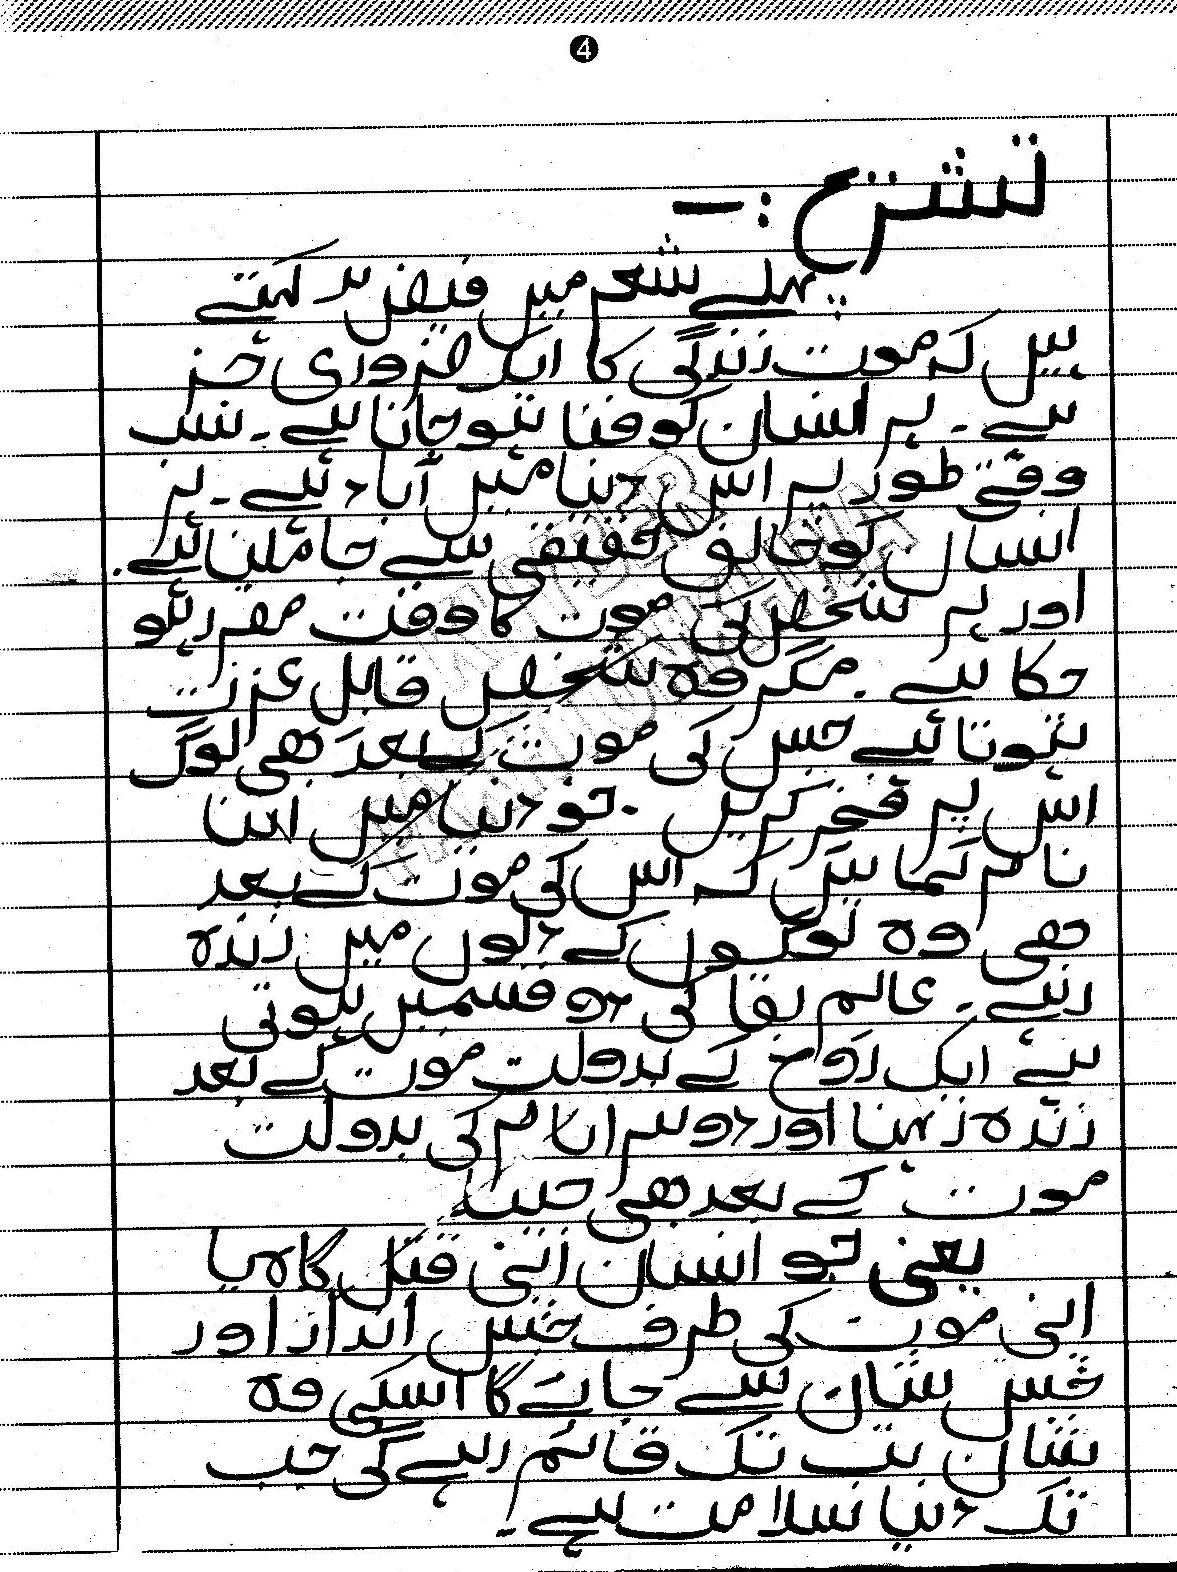 4
تشریح :-
پہلے شعر میں فیض یہ کہتے
ہیں کہ موت زندگی کا ایک ضروری جز
ہے۔ ہر انسان کو فنا ہو جانا ہے۔ سب
وقتی طور پر اس دنیا میں آباد ہے۔ ہر
انسان کو خالق حقیقی سے جا ملنا ہے۔
اور ہر شخص کی موت کا وقت مقرر ہو
چکا ہے۔ مگر وہ شخص قابل عزت
ہوتا ہے جس کی موت کے بعد بھی لوگ
اس پر فخر کریں۔ جو دنیا میں اپنا
نام کمائیں کہ اس کی موت کے بعد
بھی وہ لوگوں کے دلوں میں زندہ
رہے۔ عالم بقا کی دو قسمیں ہوتی
ہے ایک روح کے بدولت موت کے بعد
زندہ رہنا اور دوسرا نام کی بدولت
موت کے بعد بھی جینا
یعنی جو انسان اپنی قتل گاہ یا
اپنی موت کی طرف جس انداز اور
جس شان سے جائے گا اسکی وہ
شان تب تک قائم رہے گی جب
تک دنیا سلامت ہے۔